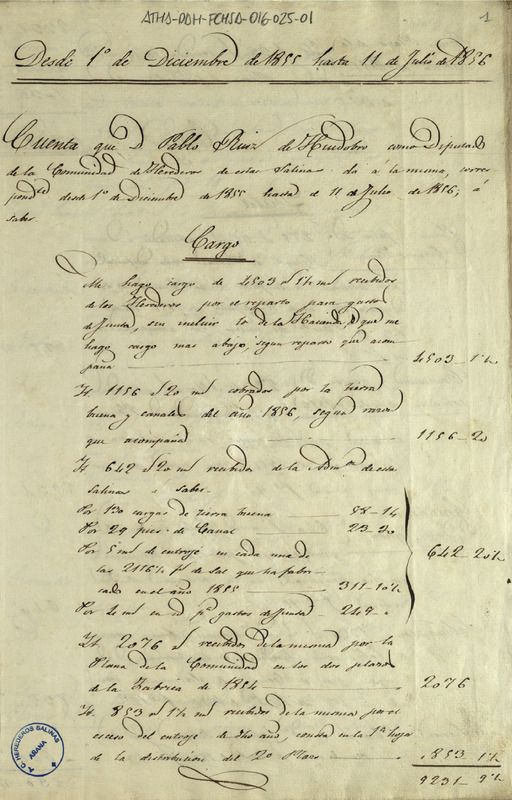 ATHA-DAH-FCHSA-016-025-01
1
Desde 1º de Diciembre de 1855 hasta 11 de Julio de 1856
Cuenta que D Pablo Ruiz de Huidobro como Diputado
de la Comunidad de Herederos de estas Salinas da á la misma, corres
pondte desde 1º de Diciembre de 1855 hasta el 11 de Julio de 1856; á
saber.
Cargo
Me hago cargo de 4503 1½ ms recibidos
de los Herederos por el reparto para gastos
de Junta, sin incluir lo de la Hacienda, que me
hago cargo mas abajo, segun reparto que acom
paña 4503-1½
It 1156 20 ms cobrados por la tierra
buena y canales del año 1856, segun
que acompaña 1156-20
It 642 20 ms recibidos de la Admon de estas
Salinas á saber.
Por 130 cargas de tierra buena 58-14
Por 29 pies de Canal 23-20
Por 5 ms de entroje en cada una de
las 2116½ fs de Sal que ha fabri-
cado en el año 1855 311-10½
Por 4 ms en id pa gastos de Junta 249 "
642-20½
It 2076 recibidos de la misma por la
Plana de la Comunidad en los dos plazos
de la Fabrica de 1854 2076
It 853 1½ ms recibidos de la misma por el
exceso del entroje de dho año, consta en la 1ª hoja
de la distribucion del 2º Plazo 853 1½
9231-9½
T.C. HEREDEROS SALINAS
AÑANA